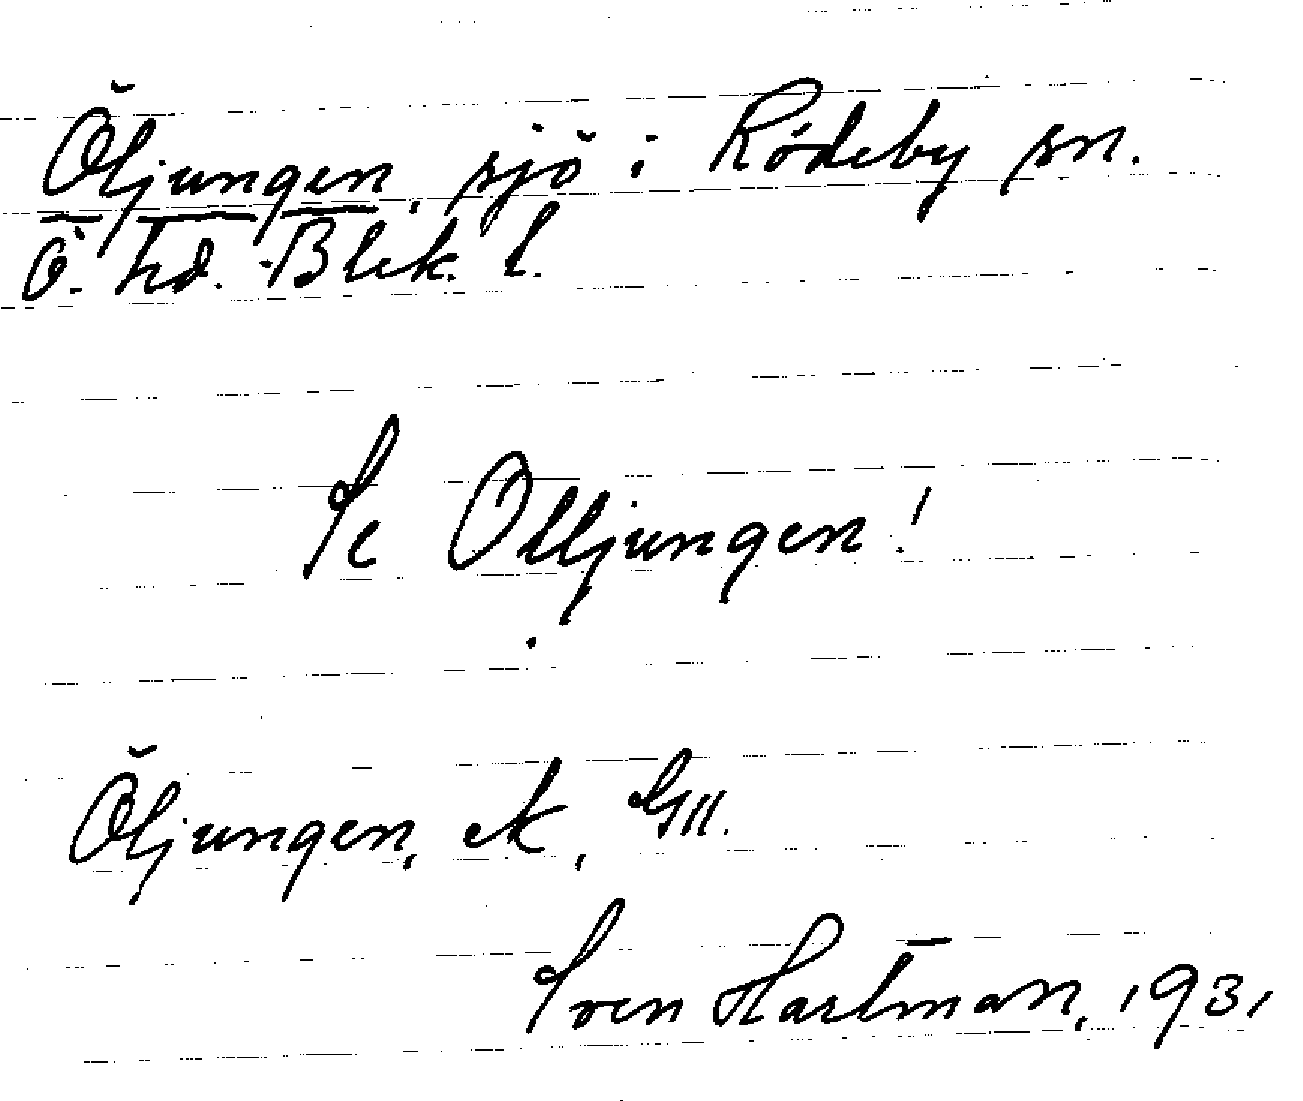 Öljungen, sjö i Rödeby sn.
Ö. hd. Blek. l.
Se Olljungen!
Öljungen, ek, GII.
Sven Hartman, 1931